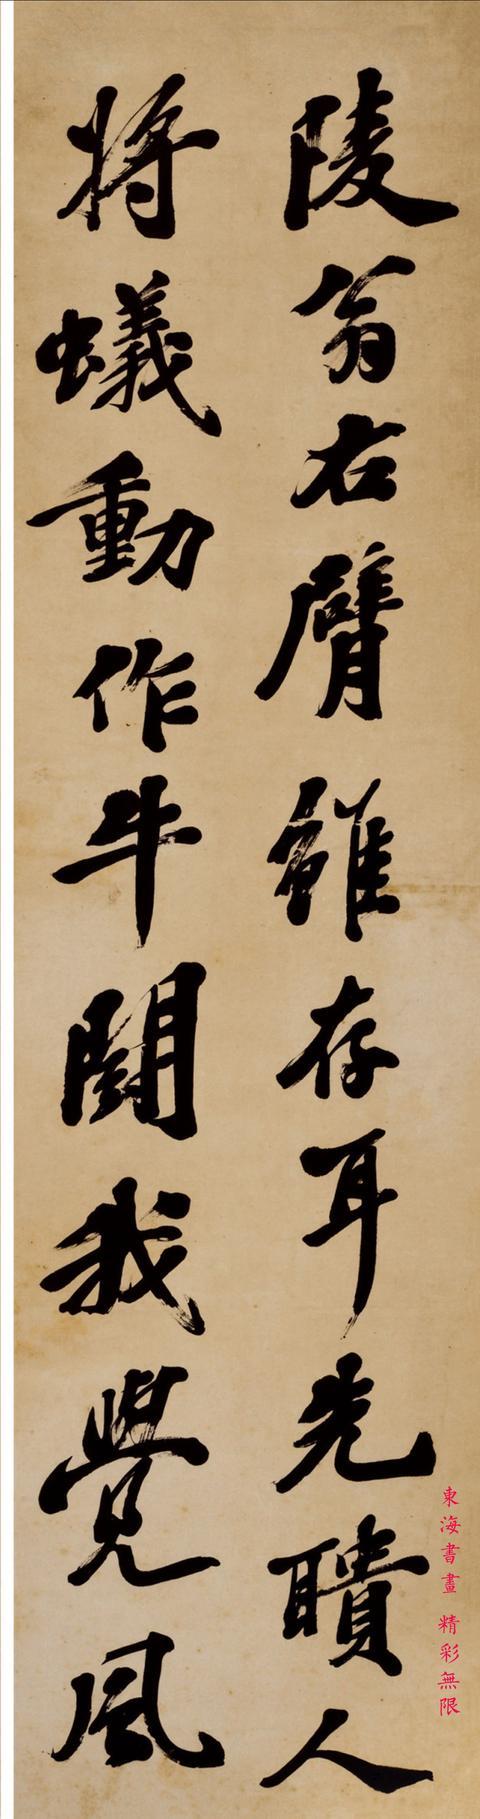 陵翁右臂雖存耳先聵人
將蟻動作牛鬪我覺風
東海書畫 精彩無限